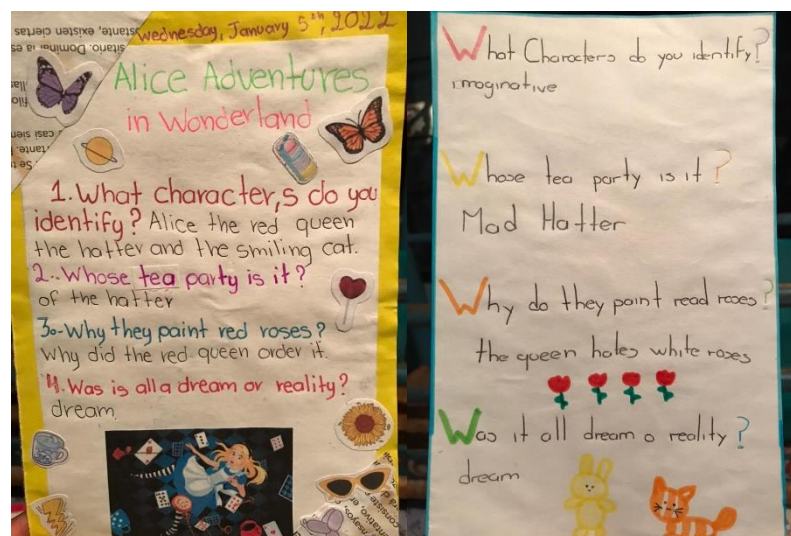 Wednesday, January 5th, 2022
Alice Adventures
in Wonderland
1. What character,s do you
identify? Alice the red queen
the hatter and the smiling cat.
2.-Whose tea party is it?
of the hatter
3o-Why they paint red roses?
Why did the red queen order it.
4. Was is all a dream or reality?
dream.
What Characters do you identify?
imaginative
Whose tea party is it?
Mad Hatter
Why do they paint read roses?
the queen hates white roses
Was it all dream o reality?
dream